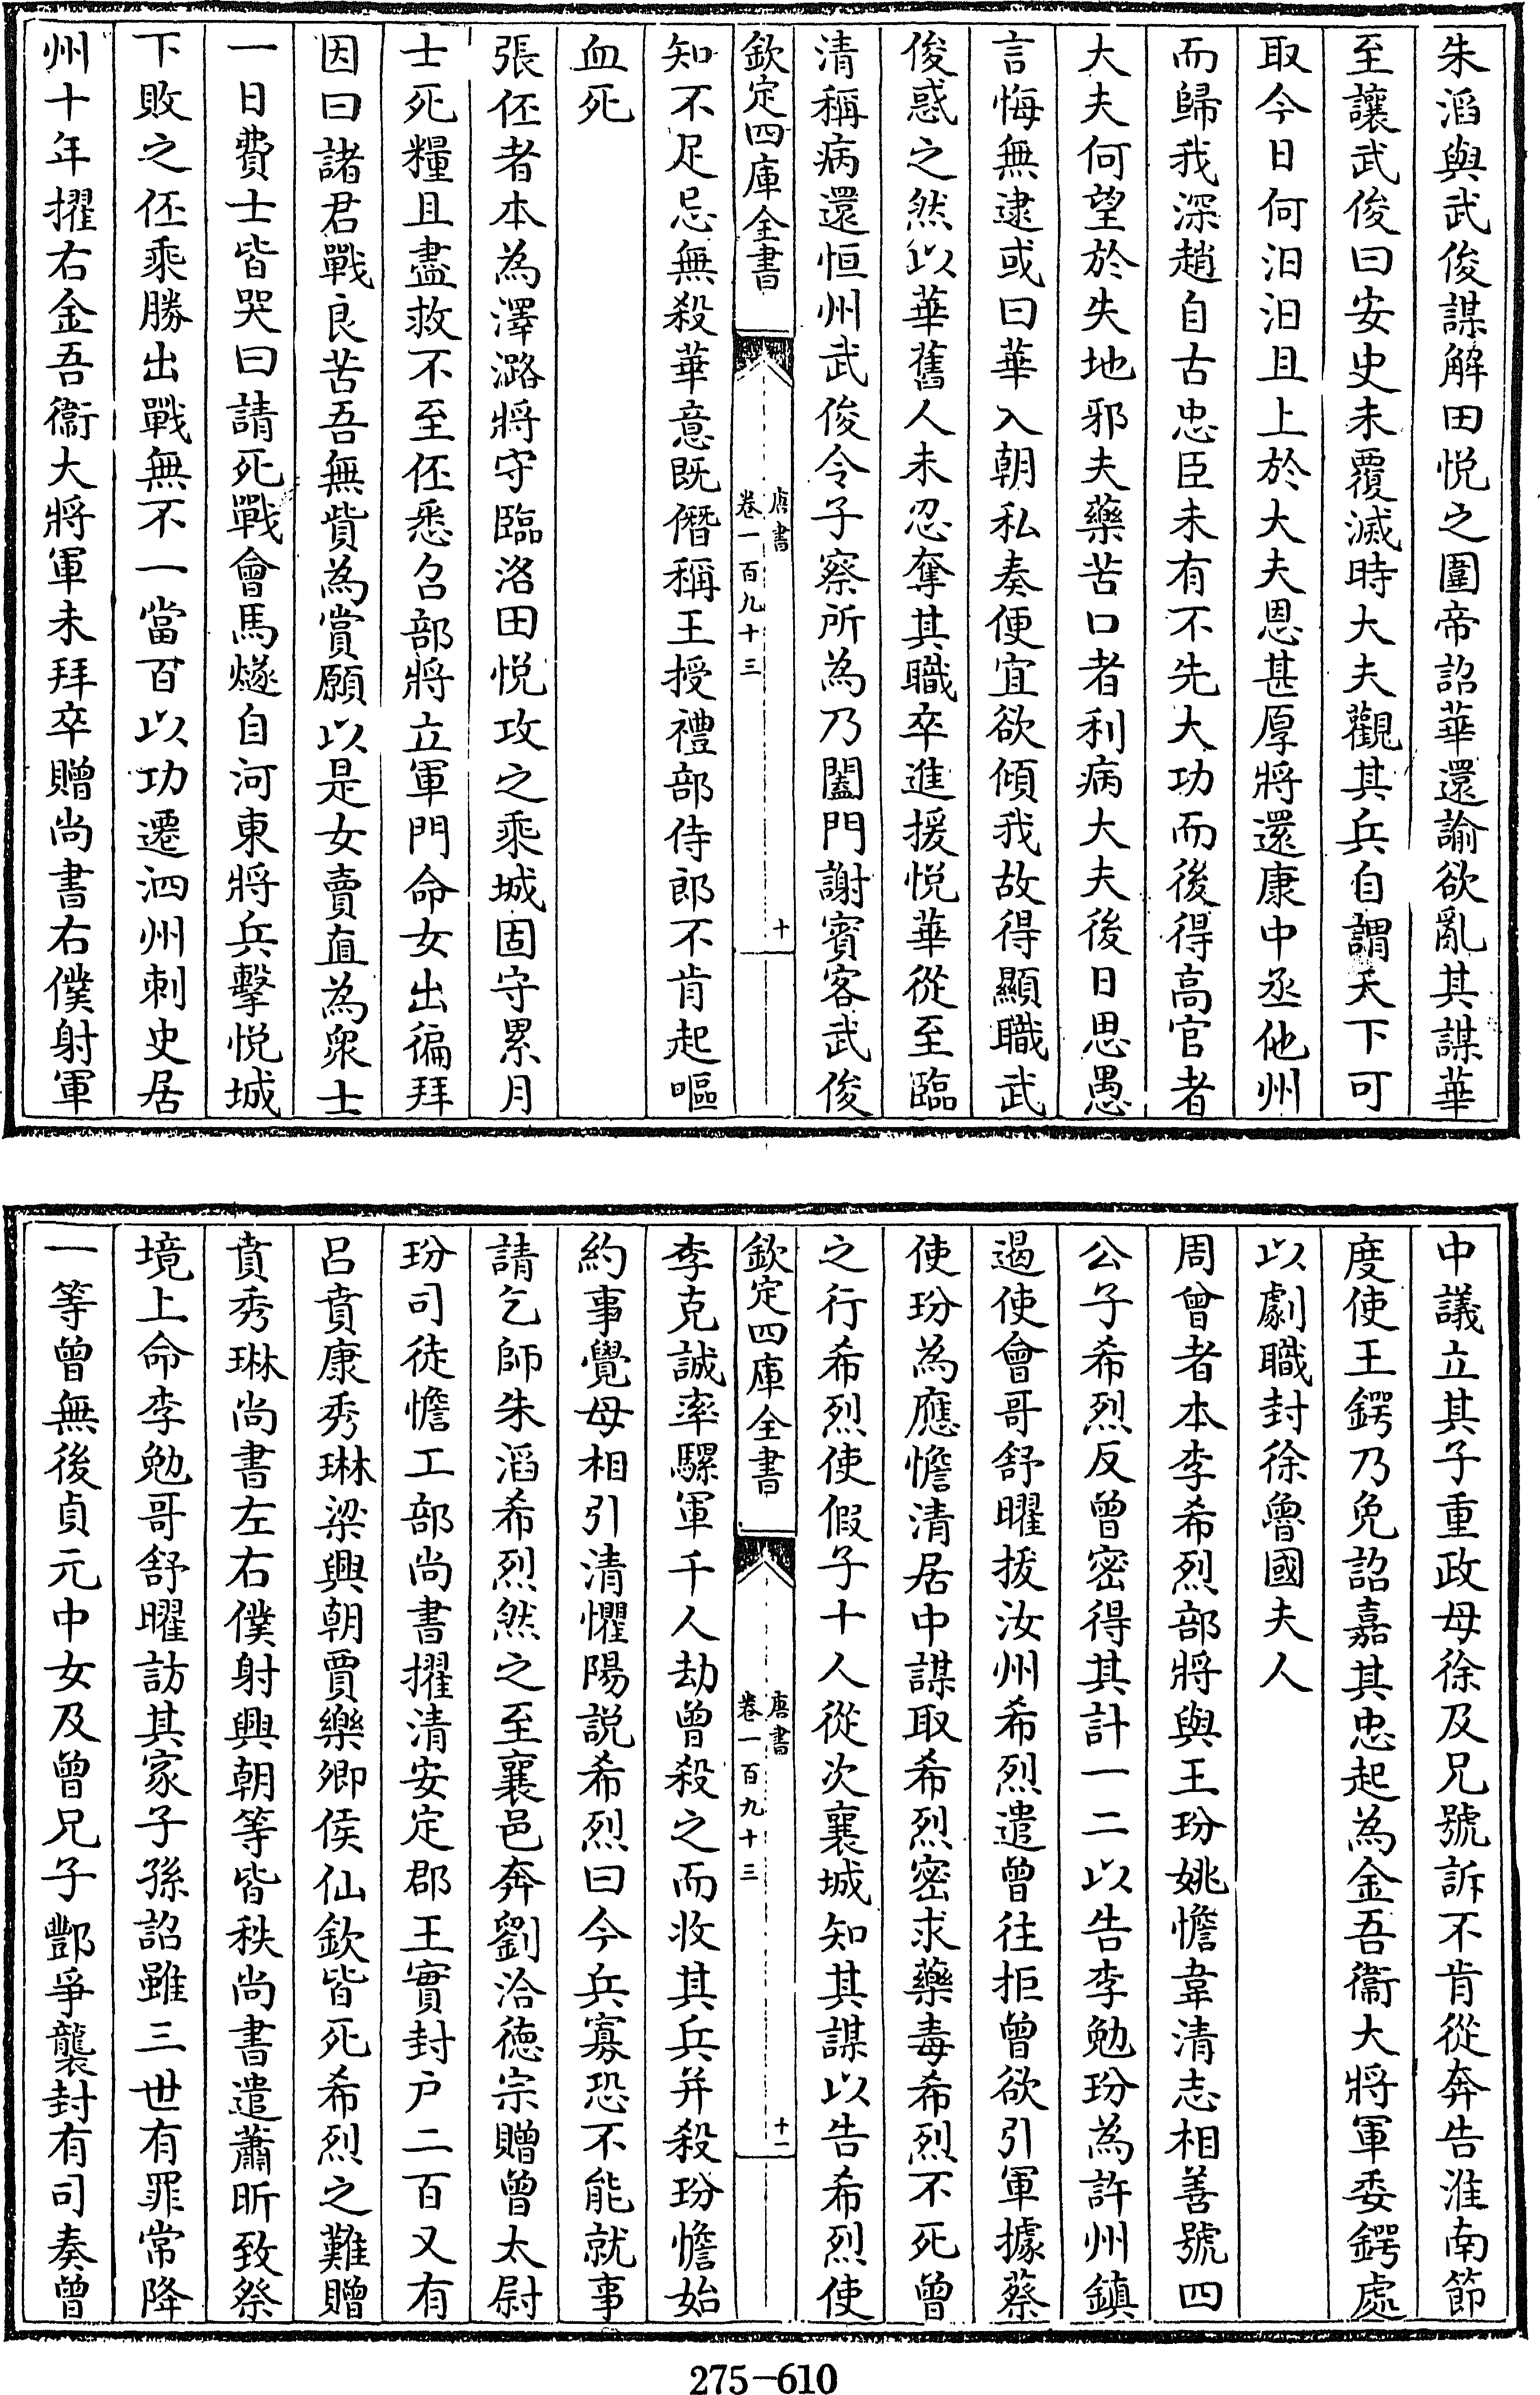 朱滔與武俊謀解田悦之圍帝詔華還諭欲亂其謀華
至讓武俊曰安史未覆滅時大夫觀其兵自謂天下可
取今日何汨汨且上於大夫恩甚厚將還康中丞他州
而歸我深趙自古忠臣未有不先大功而後得高官者
大夫何望於失地邪夫藥苦口者利病大夫後日思愚
言悔無逮或曰華入朝私奏便宜欲傾我故得顯職武
俊惑之然以華舊人未忍奪其職卒進援悦華從至臨
清稱病還恒州武俊令子察所為乃闔門謝賓客武俊
欽定四庫全書
唐書
卷一百九十三
十
知不足忌無殺華意既僭稱王授禮部侍郎不肯起嘔
血死
張伾者本為澤潞將守臨洺田悦攻之乘城固守累月
士死糧且盡救不至伾悉召部將立軍門命女出徧拜
因曰諸君戰良苦吾無貲為賞願以是女賣直為衆士
一日費士皆哭曰請死戰會馬燧自河東將兵擊悦城
下敗之伾乘勝出戰無不一當百以功遷泗州刺史居
州十年擢右金吾衞大將軍未拜卒贈尚書右僕射軍
中議立其子重政母徐及兄號訴不肯從奔告淮南節
度使王鍔乃免詔嘉其忠起為金吾衞大將軍委鍔處
以劇職封徐魯國夫人
周曾者本李希烈部將與王玢姚憺韋清志相善號四
公子希烈反曾密得其計一二以告李勉玢為許州鎮
遏使會哥舒曜拔汝州希烈遣曾往拒曾欲引軍據蔡
使玢為應憺清居中謀取希烈密求藥毒希烈不死曾
之行希烈使假子十人從次襄城知其謀以告希烈使
欽定四庫全書
唐書
卷一百九十三
十一
李克誠率騾軍千人劫曾殺之而收其兵并殺玢憺始
約事覺毋相引清懼陽説希烈曰今兵寡恐不能就事
請乞師朱滔希烈然之至襄邑奔劉洽德宗贈曾太尉
玢司徒憺工部尚書擢清安定郡王實封户二百又有
吕賁康秀琳梁興朝賈樂卿侯仙欽皆死希烈之難贈
賁秀琳尚書左右僕射興朝等皆秩尚書遣蕭昕致祭
境上命李勉哥舒曜訪其家子孫詔雖三世有罪常降
一等曾無後貞元中女及曾兄子酆爭襲封有司奏曾
275-610